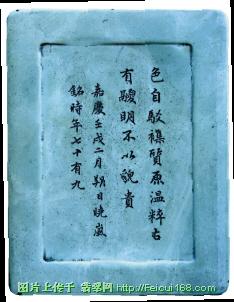 色自駁襍質原温粹古
有鑁明不以貌貴
嘉慶壬戌二月朔日曉嵐
銘時年七十有九
图片上传于 翡翠网 http://Feicui168.com